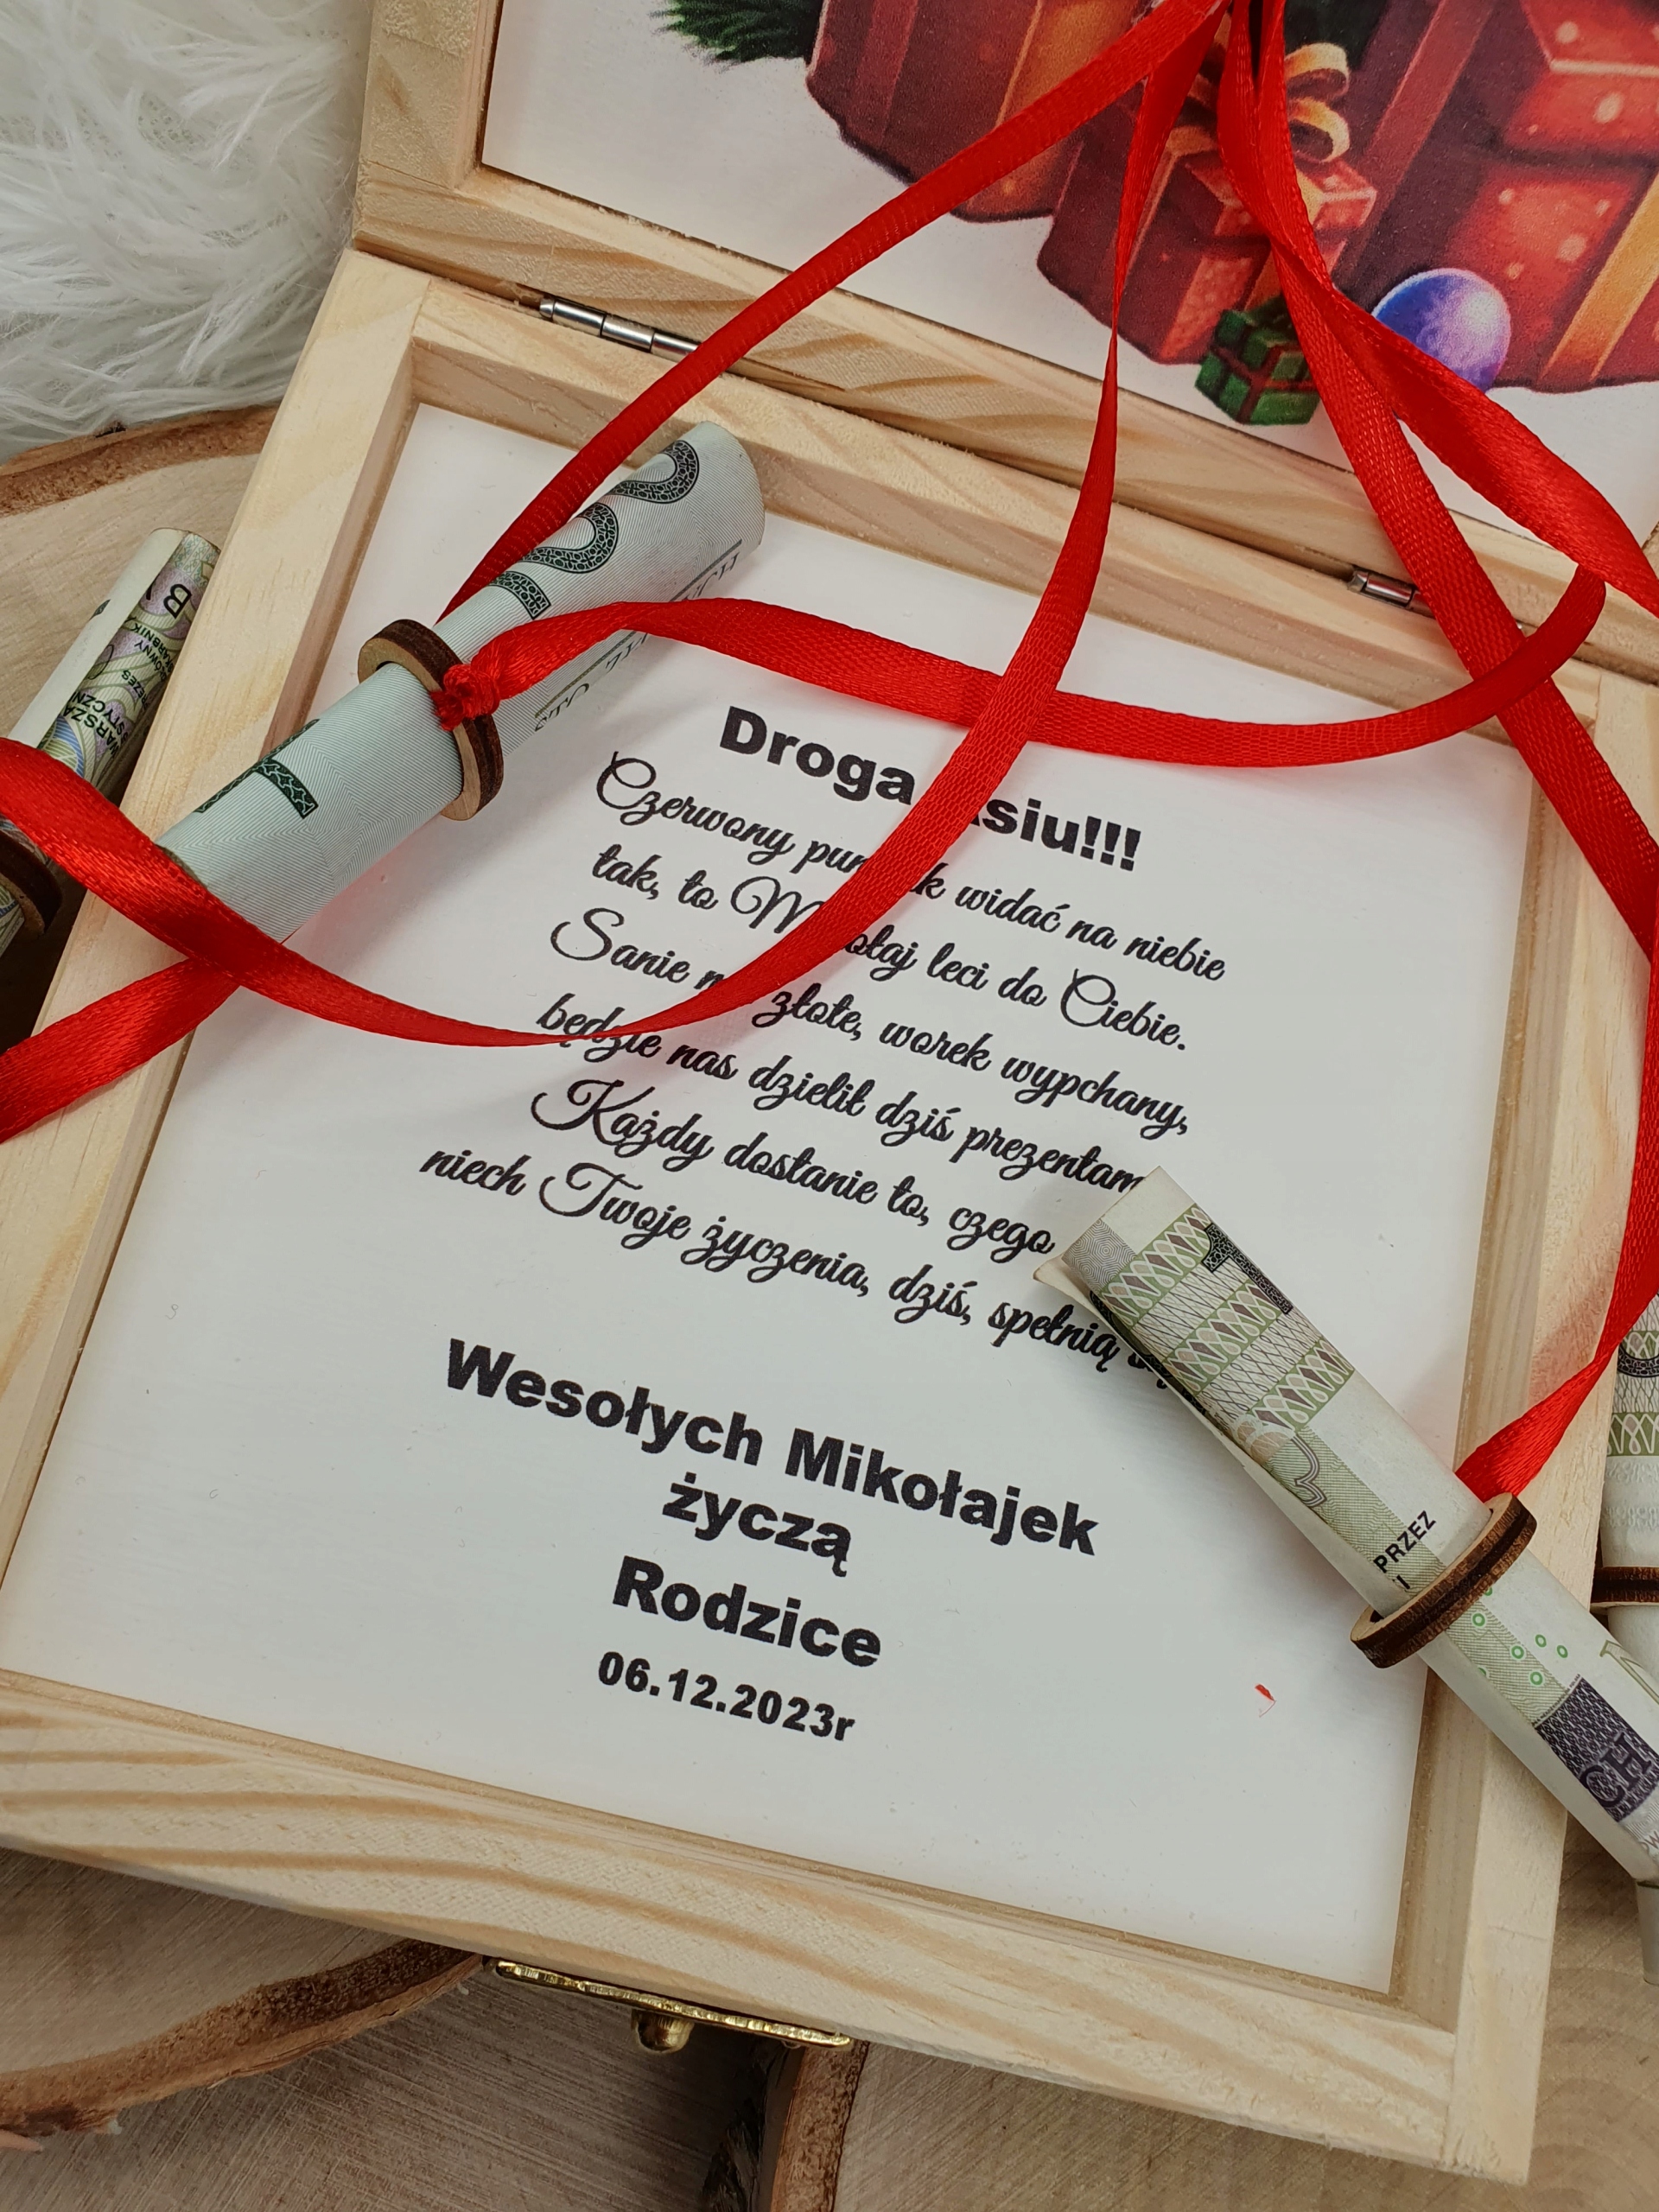 100
STO ZŁ
B
SKARBNIK
PREZES
WARSZA
STYCZN
Droga siu!!!
Czerwony pun k widać na niebie
tak, to M ołaj leci do Ciebie.
Sanie m złote, worek wypchany,
będzie nas dzielił dziś prezentam
Każdy dostanie to, czego
niech Twoje życzenia, dziś, spełnią
Wesołych Mikołajek
życzą
Rodzice
06.12.2023r
1
PRZEZ
CH